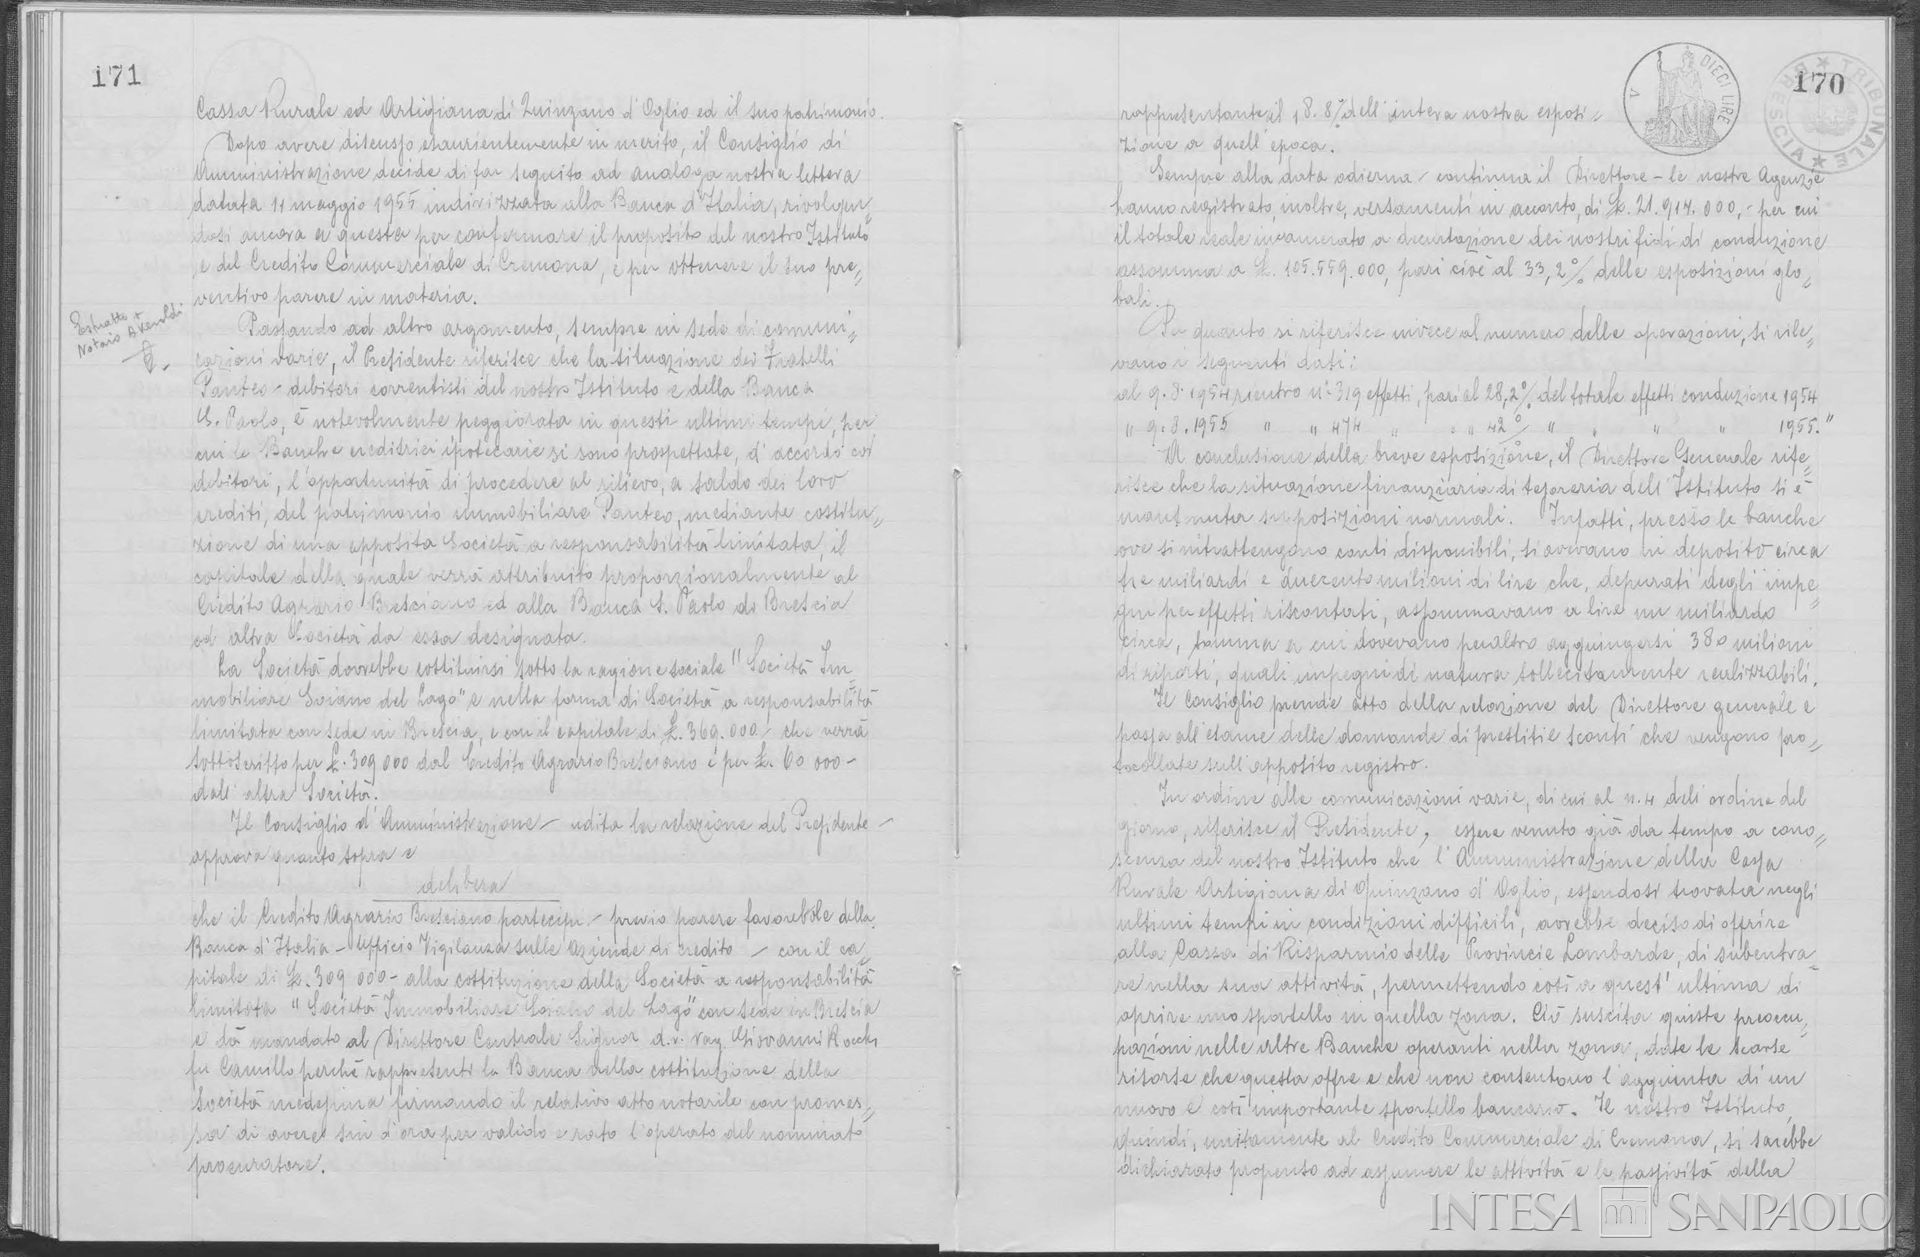 171
Cassa Rurale ed Artigiana di Quinzano d'Oglio ed il suo patrimonio.
Dopo avere discusso esaurientemente in merito, il Consiglio di
Amministrazione decide di far seguito ad analoga nostra lettera
datata 11 maggio 1955 indirizzata alla Banca d'Italia, rivolgen=
dosi ancora a questa per confermare il proposito del nostro Istituto
e del Credito Commerciale di Cremona, e per ottenere il suo pre=
ventivo parere in materia.
Estratto
Notaio
Passando ad altro argomento, sempre in sede di comuni=
cazioni varie, il Presidente riferisce che la situazione dei Fratelli
Panteo - debitori correntisti del nostro Istituto e della Banca
S. Paolo, è notevolmente peggiorata in questi ultimi tempi, per
cui le Banche creditrici ipotecarie si sono prospettate, d'accordo coi
debitori, l'opportunità di procedere al rilievo, a saldo dei loro
crediti, del patrimonio immobiliare Panteo, mediante costitu=
zione di una apposita Società a responsabilità limitata, il
capitale della quale verrà attribuito proporzionalmente al
Credito Agrario Bresciano ed alla Banca S. Paolo di Brescia
od altra Società da essa designata.
La Società dovrebbe costituirsi sotto la ragione sociale "Società Im=
mobiliare Soiano del Lago" e nella forma di Società a responsabilità
limitata con sede in Brescia, e con il capitale di £. 369.000 - che verrà
sottoscritto per £. 309 000 dal Credito Agrario Bresciano e per £. 60 000 -
dall'altra Società.
Il Consiglio d'Amministrazione - udita la relazione del Presidente -
approva quanto sopra e
delibera
che il Credito Agrario Bresciano partecipi - previo parere favorevole della
Banca d'Italia - Ufficio Vigilanza sulle Aziende di credito - con il ca=
pitale di £. 309 000 - alla costituzione della Società a responsabilità
limitata "Società Immobiliare Soiano del Lago" con sede in Brescia
e dà mandato al Direttore Centrale Signor d.r. rag. Giovanni Rocchi
fu Camillo perchè rappresenti la Banca nella costituzione della
Società medesima firmando il relativo atto notarile con promes=
sa di avere sin d'ora per valido e rato l'operato del nominato
procuratore.
170
DIECI LIRE
TRIBUNALE BRESCIA
rappresentante il 18.8% dell'intera nostra esposi=
zione a quell'epoca.
Sempre alla data odierna - continua il Direttore - le nostre Agenzie
hanno registrato, inoltre, versamenti in acconto, di £. 21.914.000,- per cui
il totale reale incamerato a decurtazione dei nostri fidi di conduzione
assomma a £. 105.559.000, pari cioè al 33,2% delle esposizioni glo=
bali.
Per quanto si riferisce invece al numero delle operazioni, si rile=
vano i seguenti dati:
al 9.8.1954 rientro n° 319 effetti, pari al 28,2% del totale effetti conduzione 1954
" 9.8.1955 " " 474 " " " 42% " " " " 1955."
A conclusione della breve esposizione, il Direttore Generale rife=
risce che la situazione finanziaria di tesoreria dell'Istituto si è
mantenuta su posizioni normali. Infatti, presso le banche
ove si intrattengono conti disponibili, si avevano in deposito circa
tre miliardi e duecento milioni di lire che, depurati degli impe=
gni per effetti riscontati, assommavano a lire un miliardo
circa, somma a cui dovevano peraltro aggiungersi 380 milioni
di riporti, quali impegni di natura sollecitamente realizzabili.
Il Consiglio prende atto della relazione del Direttore generale e
passa all'esame delle domande di prestiti e sconti che vengono pro=
tocollate sull'apposito registro.
In ordine alle comunicazioni varie, di cui al n. 4 dell'ordine del
giorno, riferisce il Presidente, essere venuto già da tempo a cono=
scenza del nostro Istituto che l'Amministrazione della Cassa
Rurale Artigiana di Quinzano d'Oglio, essendosi trovata negli
ultimi tempi in condizioni difficili, avrebbe deciso di offrire
alla Cassa di Risparmio delle Provincie Lombarde, di subentra=
re nella sua attività, permettendo così a quest'ultima di
aprire uno sportello in quella zona. Ciò suscita giuste preoccu=
pazioni nelle altre Banche operanti nella zona, date le scarse
risorse che questa offre e che non consentono l'aggiunta di un
nuovo e così importante sportello bancario. Il nostro Istituto,
quindi, unitamente al Credito Commerciale di Cremona, si sarebbe
dichiarato propenso ad assumere le attività e le passività della
INTESA SANPAOLO